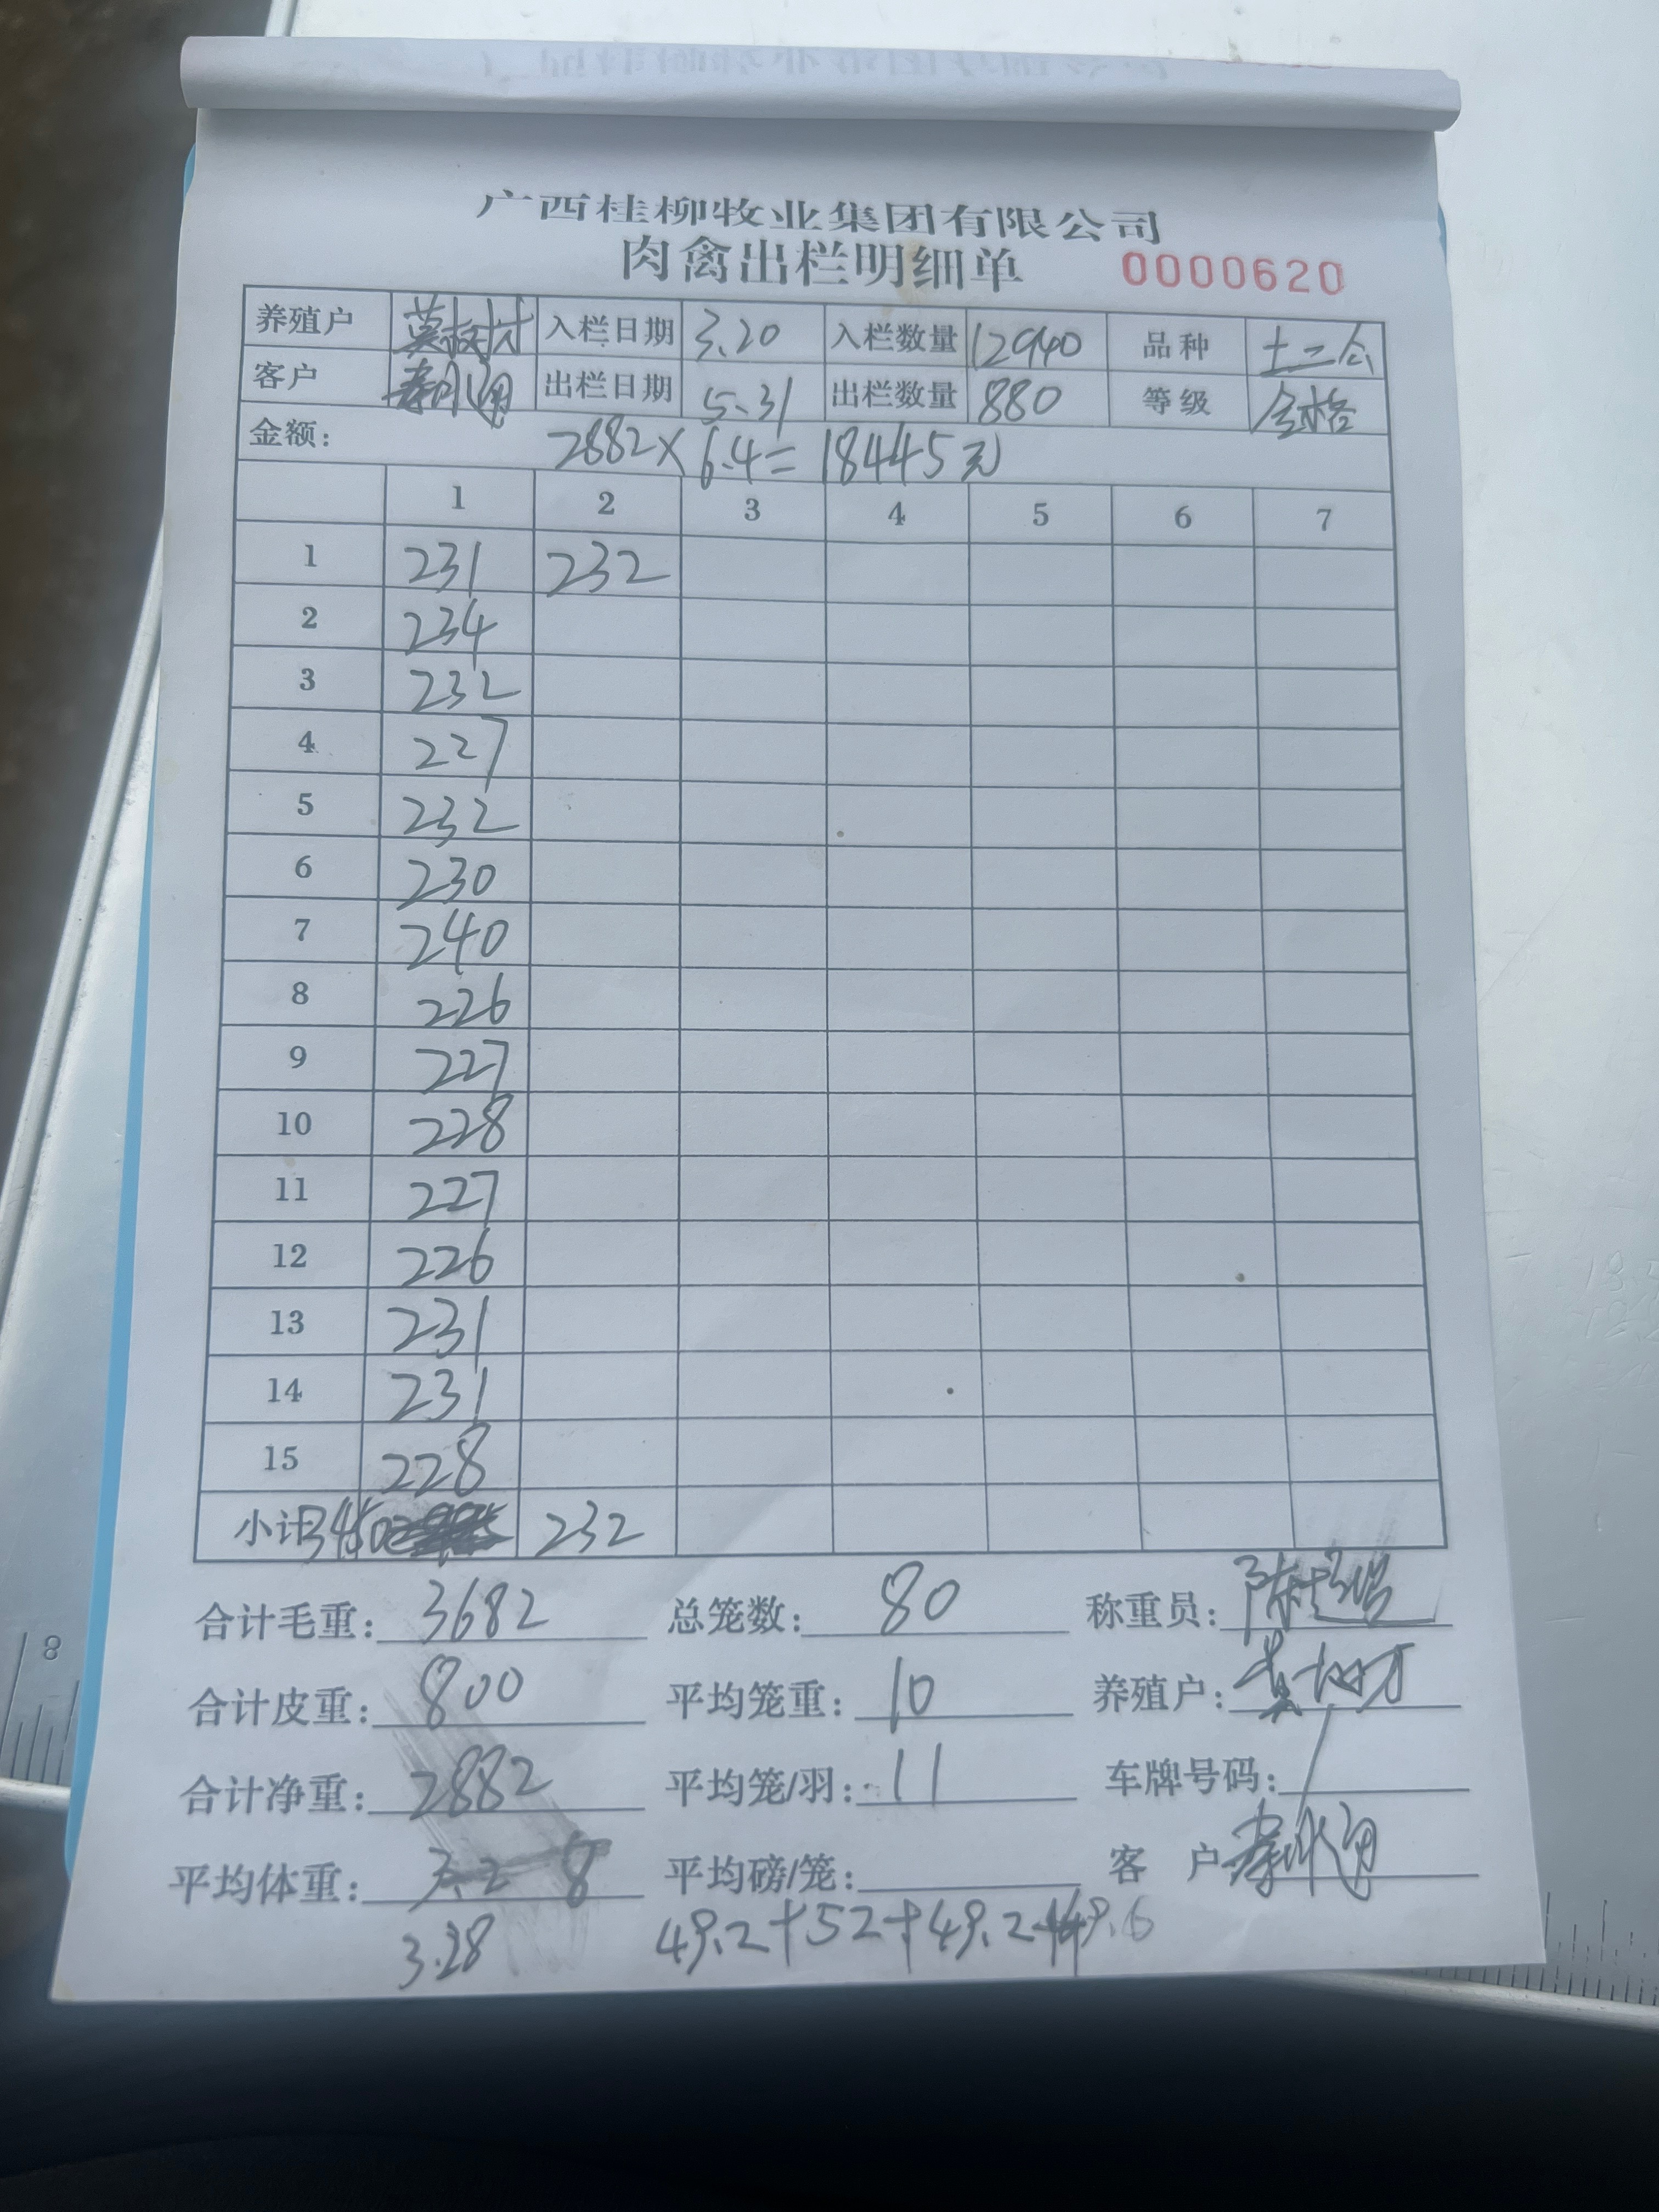 广西桂柳牧业集团有限公司
肉禽出栏明细单 0000620
养殖户 入栏日期 3.20 入栏数量 12940 品种 土二
客户 出栏日期 5.31 出栏数量 880 等级 合格
金额: 2882×6.4=18445元
1 2 3 4 5 6 7
1 231 232
2 234
3 232
4 227
5 232
6 230
7 240
8 226
9 227
10 228
11 227
12 226
13 231
14 231
15 228
小计 3450 232
合计毛重: 3682 总笼数: 80 称重员:
合计皮重: 800 平均笼重: 10 养殖户:
合计净重: 2882 平均笼/羽: 11 车牌号码: /
平均体重: 3.2 8 平均磅/笼: 客 户
3.28 49.2+52+49.2+49.6
8